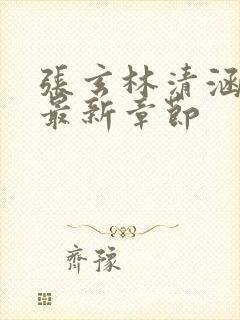 張玄林清涵
最新章節
齊豫